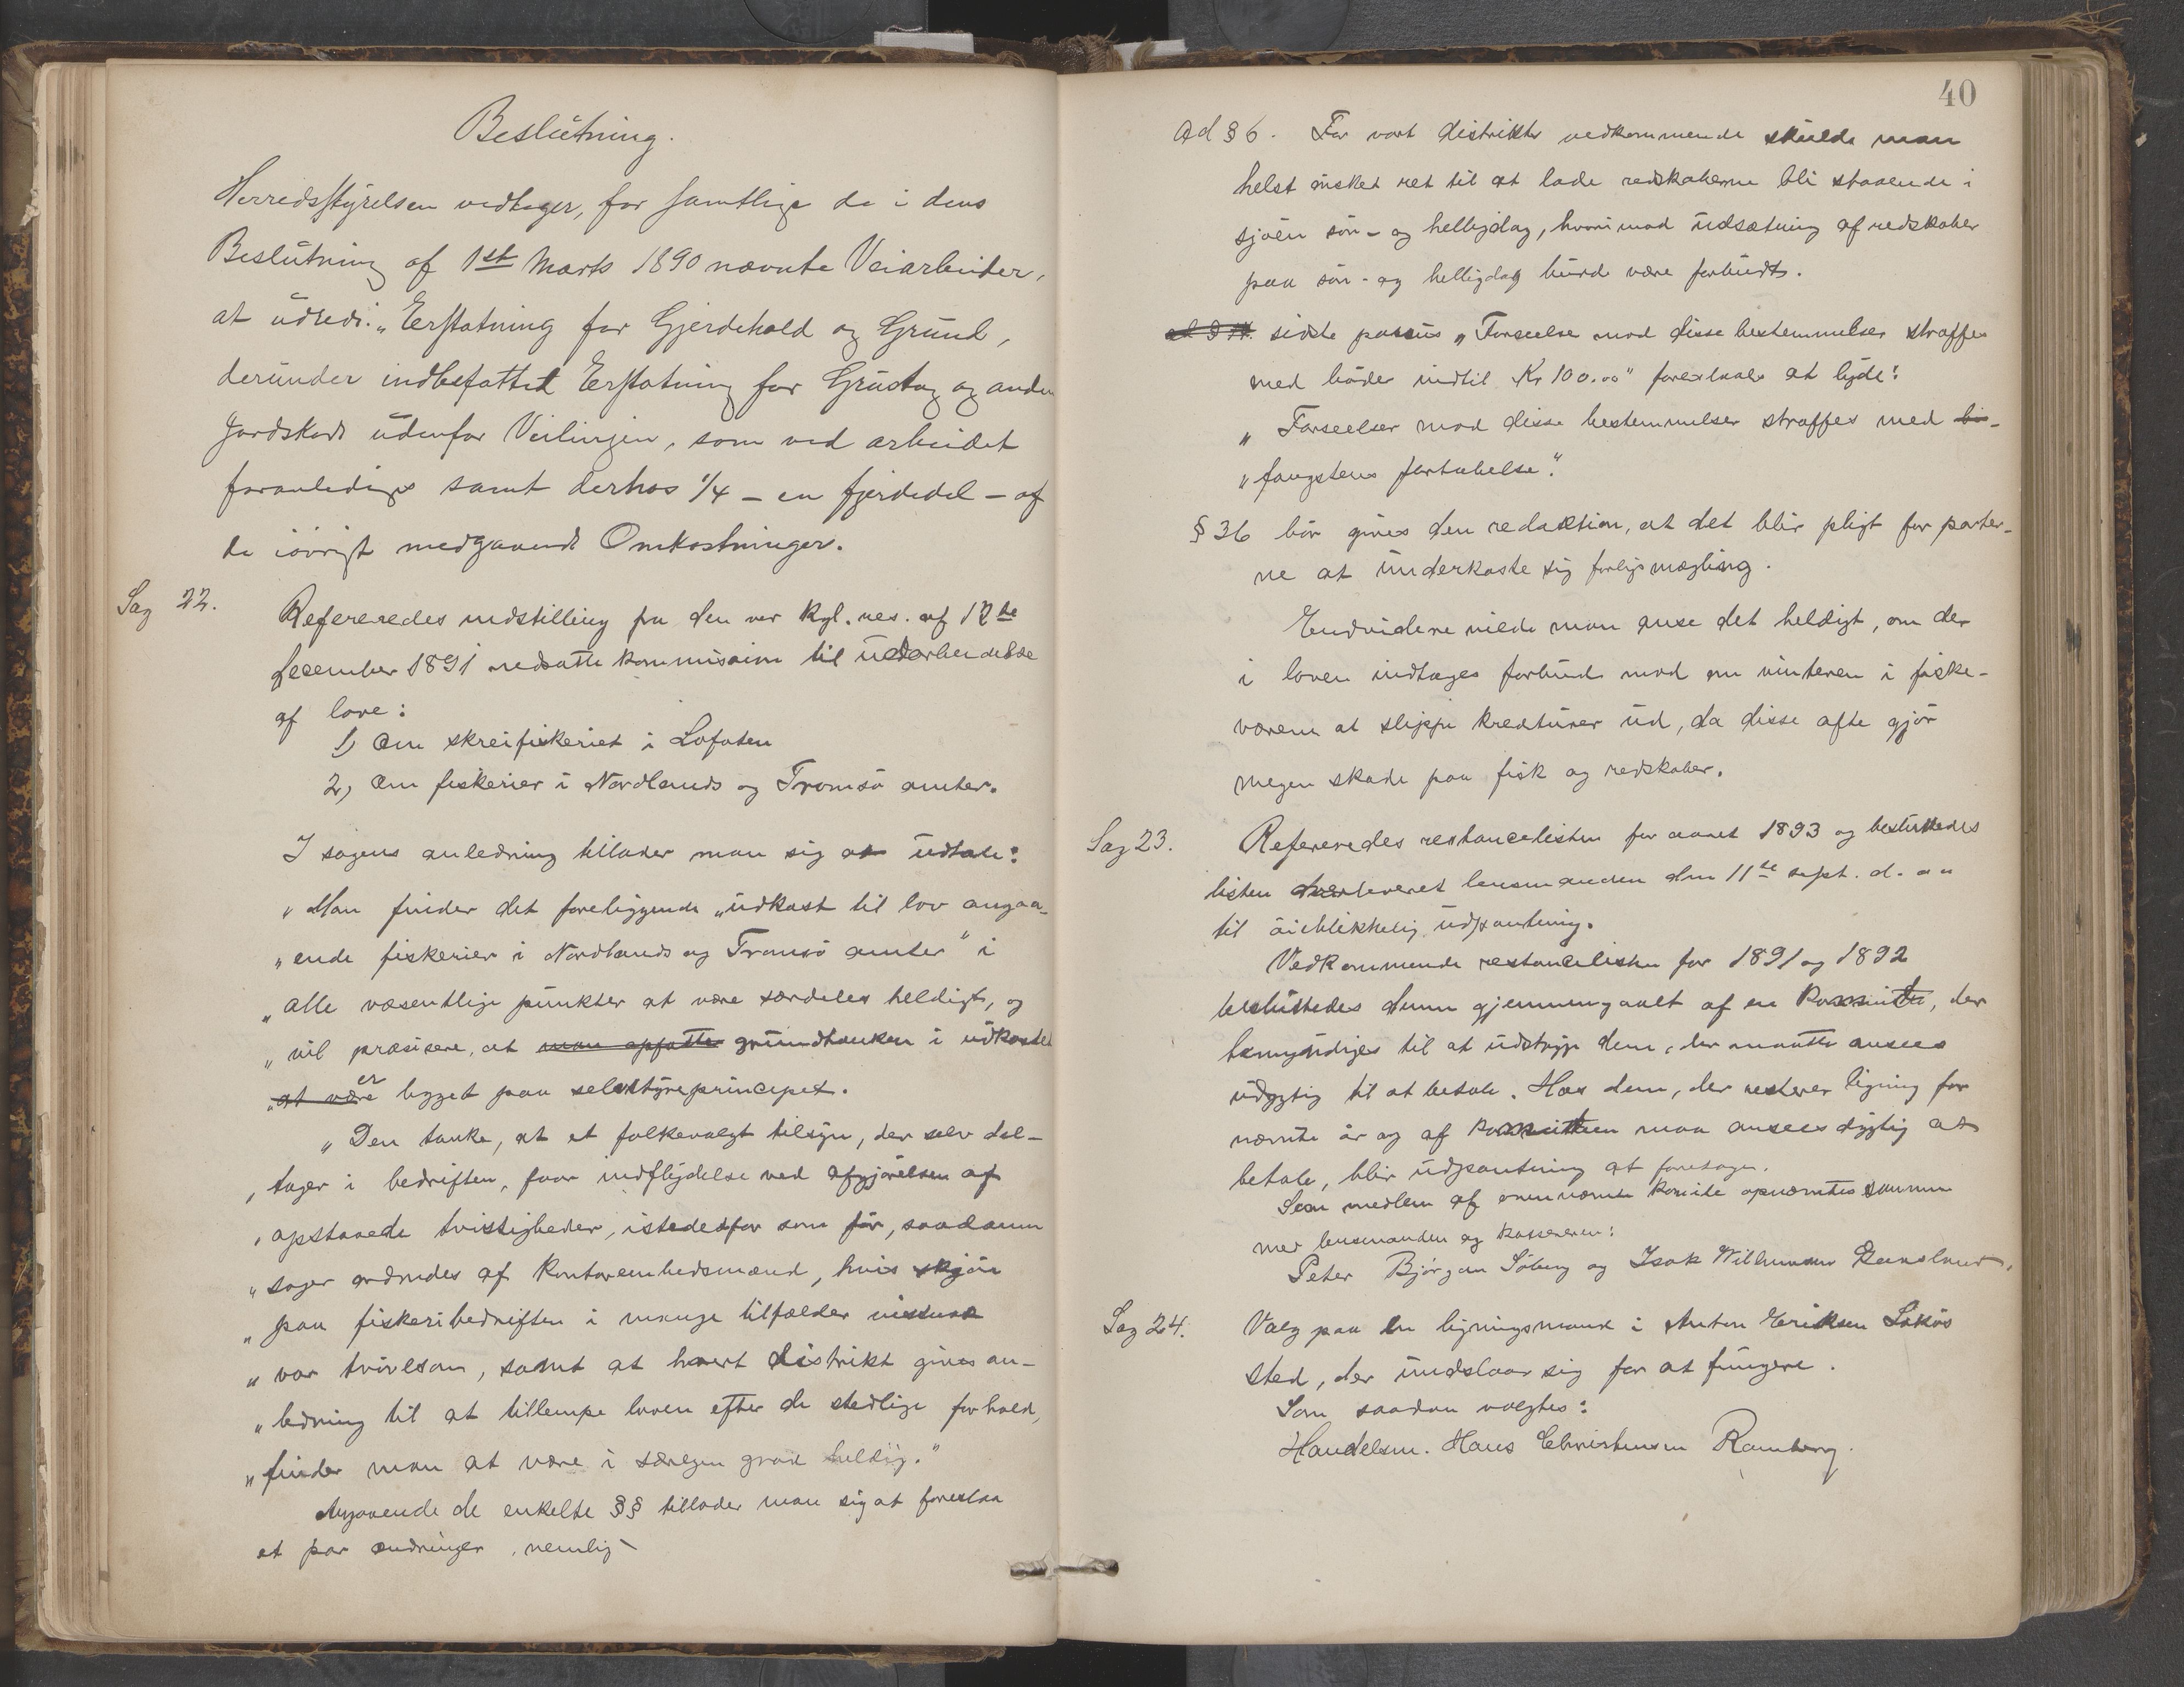 Beslutning.
Herredsstyrelsen vedtager, for samtlige de i dens
Beslutning af 1st Marts 1890 nævnte Veiarbeider,
at udrede: „Erstatning for Gjerdehold og Grund,
derunder indbefattet Erstatning for Grustag og anden
Jordskade udenfor Veilinjen, som ved arbeidet
foranlediges samt derhos 1/4 - en fjerdedel - af
de iøvrigt medgaaende Omkostninger.
Sag 22.
Refereredes indstilling fra den ver kgl. res. af 12te
december 1891 nedsatte kommission til udarbeidelse
af love:
1) Om skreifiskeriet i Lofoten
2) Om fiskerier i Nordlands og Tromsö amter.
I sagens anledning tillader man sig at udtale:
„Man finder det foreliggende „udkast til lov angaa-
„ende fiskerier i Nordlands og Tromsö amter" i
„alle væsentlige punkter at være særdeles heldigt, og
„vil præsisere, at man opfatter grundtanken i udkastet
„at være er bygget paa selvstyreprincipet.
„Den tanke, at et folkevalgt tilsyn, der selv del-
„tager i bedriften, faar indflydelse ved afgjörelsen af
„opstaaede tvistigheder, istedetfor som för, saadanne
„sager ordnedes af kontorembedsmænd, hvis skjön
„paa fiskeribedriften i mange tilfælder
„var tvivlsom, samt at hvert distrikt gives an-
„ledning til at tillempe loven efter de stedlige forhold,
„finder man at være i særegen grad heldig."
Angaaende de enkelte §§ tillader man sig at foreslaa
et par ændringer, nemlig -
40
Ad § 6. For vort distrikts vedkommende skulde man
helst önsket ret til at lade redskaberne bli staaende i
sjöen sön- og helligdag, hvorimod udsætning af redskaber
paa sön- og helligdag burde være forbudt.
sidste passus „Forseelse mod disse bestemmelser straffes
med böder indtil Kr 100.00" foreslaaes at lyde:
„Forseelser mod disse bestemmelser straffes med bö-
„fangstens fortabelse".
§ 36 bör gives den redaktion, at det blir pligt for parter-
ne at underkaste sig forligsmægling.
Endvidere vilde man anse det heldigt, om der
i loven indtages forbud mod om vinteren i fiske-
værene at slippe kreaturer ud, da disse ofte gjör
megen skade paa fisk og redskaber.
Sag 23.
Refereredes restancelisten for aaret 1893 og besluttedes
listen overleveret lensmanden den 11te sept. d. aa
til öieblikkelig udpantning.
Vedkommende restancelisten for 1891 og 1892
besluttedes denne gjennemgaaet af en komite, der
bemyndiges til at udstryge dem, der maatte ansees
udygtig til at betale. Hos dem, der resterer ligning for
nævnte år og af komiteen maa ansees dygtig at
betale, blir udpantning at foretage.
Som medlem af ovennævnte komite opnævntes sammen
med lensmanden og kassereren:
Peter Björgan Söberg og Isak Wilhumsen
Sag 24.
Valg paa en ligningsmand i Anton Eriksen
sted, der undslaar sig for at fungere.
Som saadan valgtes:
Handelsm. Hans Christensen Ramberg.